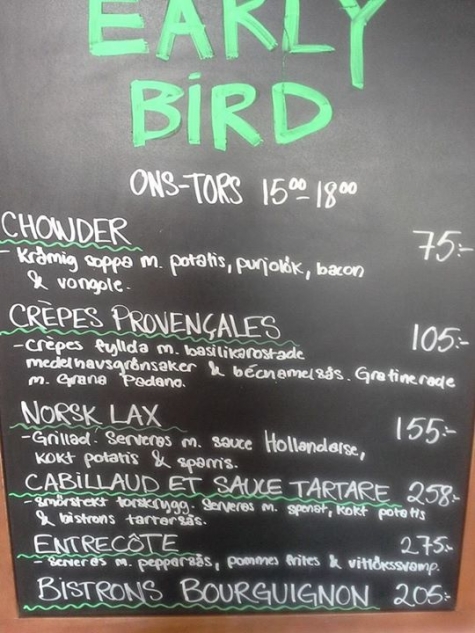 EARLY
BIRD
ONS-TORS 15⁰⁰-18⁰⁰
CHOWDER 75:-
- Krämig soppa m. potatis, purjolök, bacon
& vongole.
CRÈPES PROVENÇALES 105:-
- crèpes fyllda m. basilikarostade
medelhavsgrönsaker & béchamelsås. Gratinerade
m. Grana Padano.
NORSK LAX 155:-
- Grillad. Serveras m. sauce Hollandaise,
kokt potatis & sparris.
CABILLAUD ET SAUCE TARTARE 258:-
- smörstekt torskrygg. Serveras m. spenat, kokt potatis
& bistrons tartarsås.
ENTRECÔTE 275:-
- serveras m. pepparsås, pommes frites & vitlökssvamp.
BISTRONS BOURGUIGNON 205:-